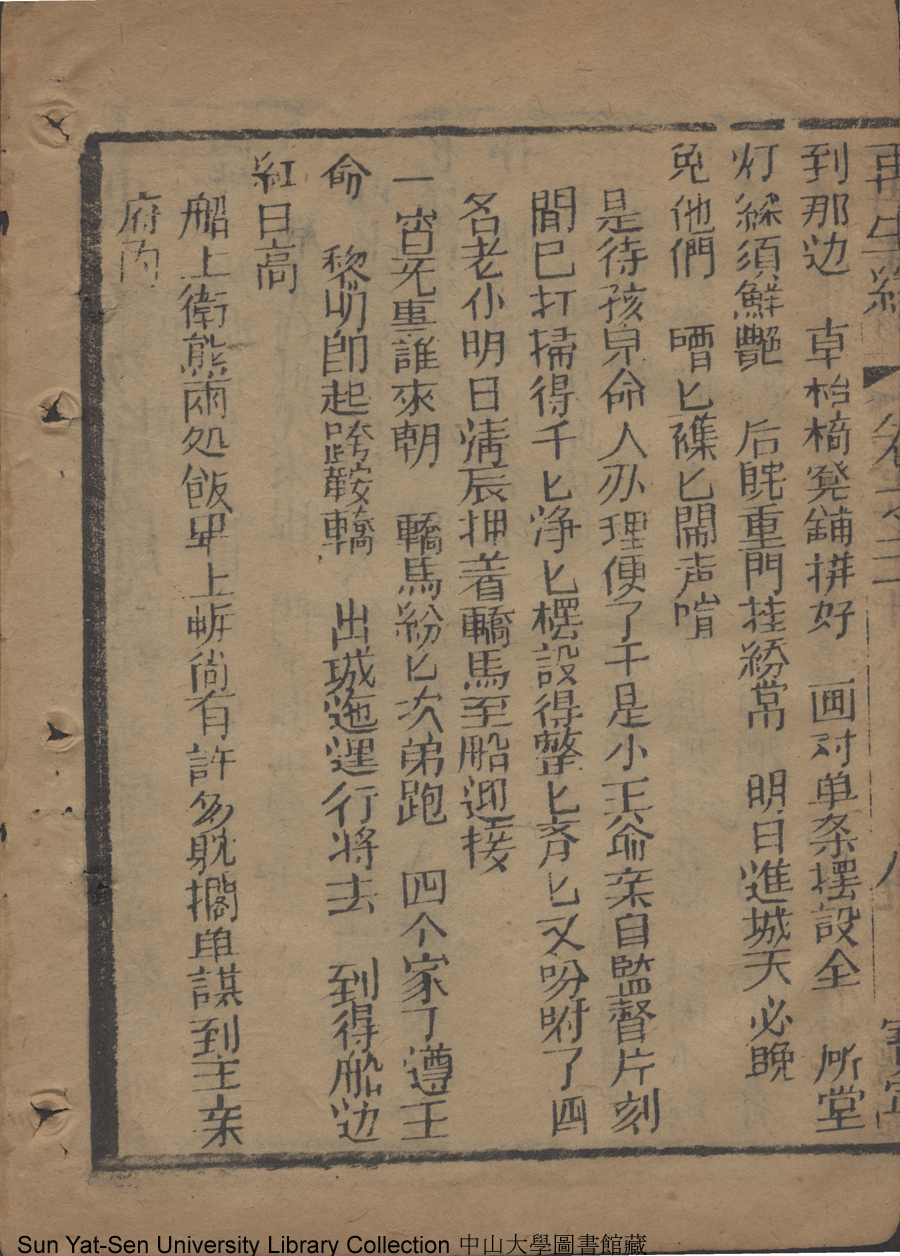 再生緣 卷之二十
到那边 卓枱椅凳鋪拼好 画对单条摆設全 所堂
灯綵須鮮艷 后院重門挂紛常 明日進城天必晚
免他們 嘈匕襍匕閙声喧
是待孩皃命人办理便了于是小王命亲自監督片刻
間已打掃得千匕净匕摆設得整匕斉匕又吩咐了四
名老仆明日淸辰押着轎馬至船迎接
一宵无事誰來朝 轎馬紛匕次弟跑 四个家丁遵王
命 黎明即起跨鞍轎 出城迤逞行將去 到得船边
紅日高
船上衛熊兩処飯畢上𫝊尚有許多躭擱单謀到主亲
府内
Sun Yat-Sen University Library Collection 中山大學圖書館藏